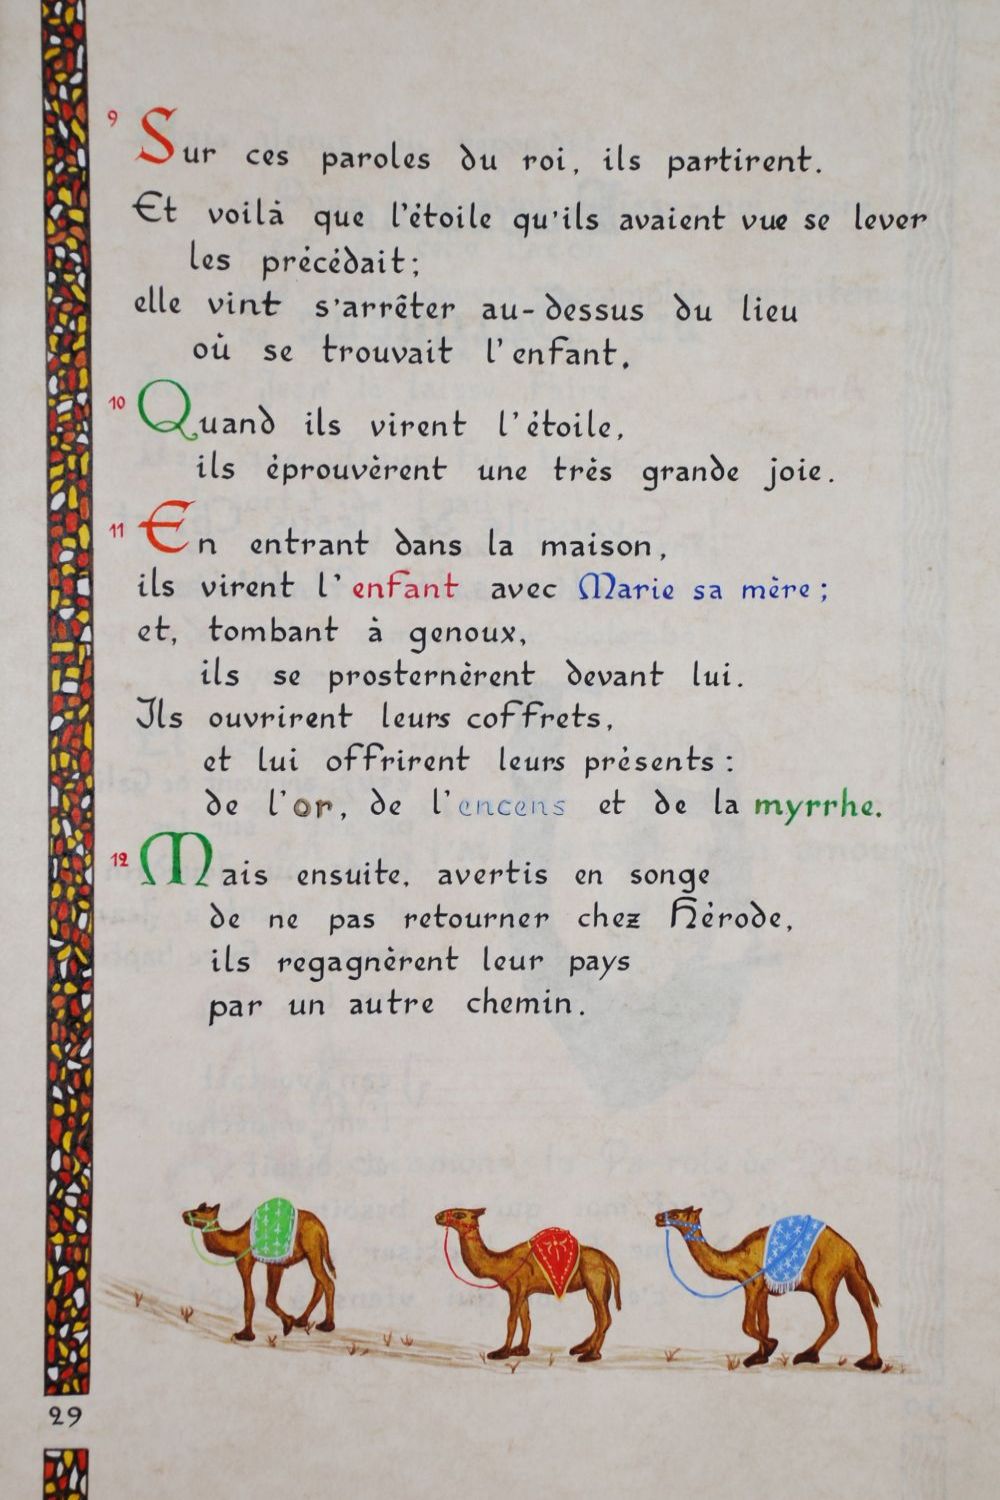 9 Sur ces paroles du roi, ils partirent.
Et voilà que l'étoile qu'ils avaient vue se lever
les précédait;
elle vint s'arrêter au-dessus du lieu
où se trouvait l'enfant.
10 Quand ils virent l'étoile,
ils éprouvèrent une très grande joie.
11 En entrant dans la maison,
ils virent l'enfant avec Marie sa mère;
et, tombant à genoux,
ils se prosternèrent devant lui.
Ils ouvrirent leurs coffrets,
et lui offrirent leurs présents:
de l'or, de l'encens et de la myrrhe.
12 Mais ensuite, avertis en songe
de ne pas retourner chez Hérode,
ils regagnèrent leur pays
par un autre chemin.
29